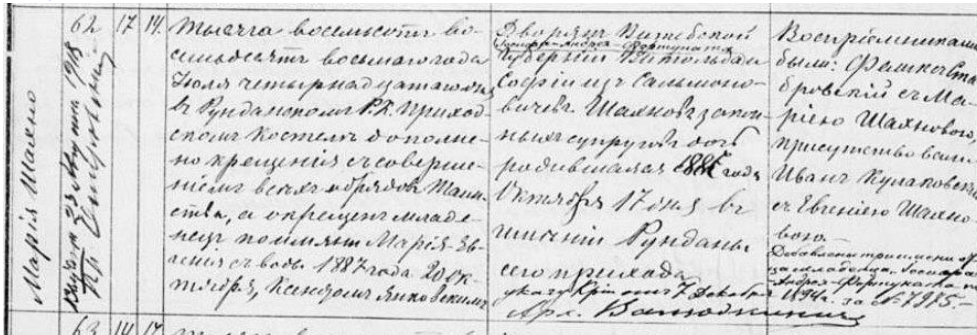 Марія Шахно
62
17
14.
Тысяча восемьсотъ во-
семьдесятъ восьмаго года
Іюля четырнадцатаго дня
въ Рунданскомъ Р. К. Приход-
скомъ Костелѣ дополне-
но крещеніе съ соверше-
ніемъ всѣхъ обрядовъ Таин-
ства, а окрещенъ младе-
нецъ по имени Марія-Ев-
генія съ воды 1887 года 20 Ок-
тября, Ксендзомъ Янковскимъ
Дворянъ Витебской
Іосафа-Андрея-Фортуната
Губерніи Витольда и
Софіи изъ Сальмоно-
вичевъ Шахновъ закон-
ныхъ супруговъ дочь
родившаяся года
Октября 17 дня въ
имѣніи Рунданы
сего прихода
указу Кр. отъ 7 Декабря
1894 г. за № 7975.-
Воспріемниками
были: Феликсъ
бровскій съ Ма-
ріею Шахновою,
присутствовали
Иванъ Кулаковскій
съ Евгеніею Шахно-
вою.
Добавлены три имени
Андрея-Фортуната
63
14
17